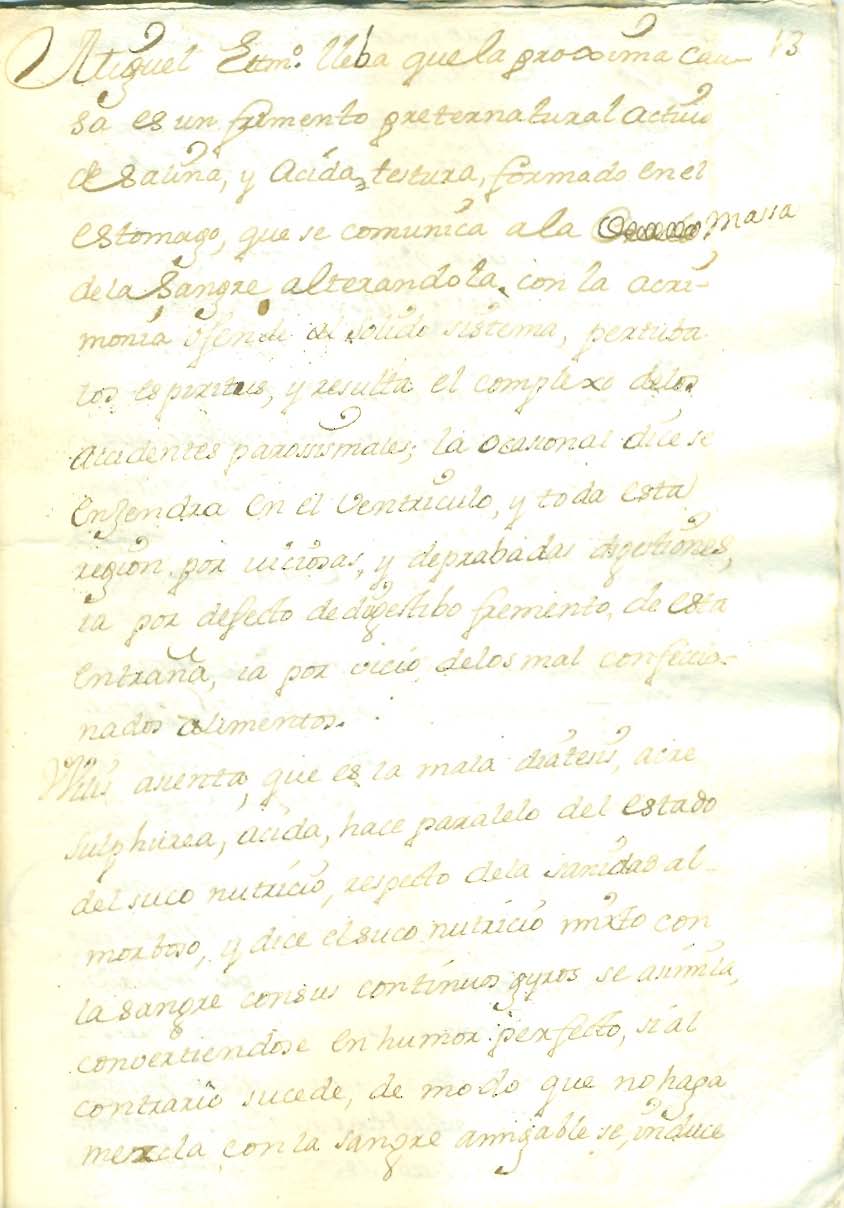 13
Miguel Ettmo. lleba que la proxima cau-
sa es un fremento preternatural activo
de salina, y acida testura, formado en el
estomago, que se comunica a la massa
de la sangre alterandola, con la acri-
monia ofende al solido sistema, pertuba
los espiritus, y resulta el complexo delos
accidentes parosismales; la ocasional dice se
engendra en el ventriculo, y toda esta
region por viciosas, y deprabadas digestiones,
ia por defecto de digestibo fremento, de esta
entraña, ia por vicio, delos mal confeccio-
nados alimentos.
Wilis asienta, que es la mala diatesis, acre
sulphurea, acida, hace paralelo del estado
del suco nutricio, respecto dela sanidad al
morboso, y dice el suco nutricio mixto con
la sangre con sus continuos gyros se asimila,
convertiendose en humor perfecto, si al
contrario sucede, de modo que no haga
mezcla con la sangre amigable se, induce